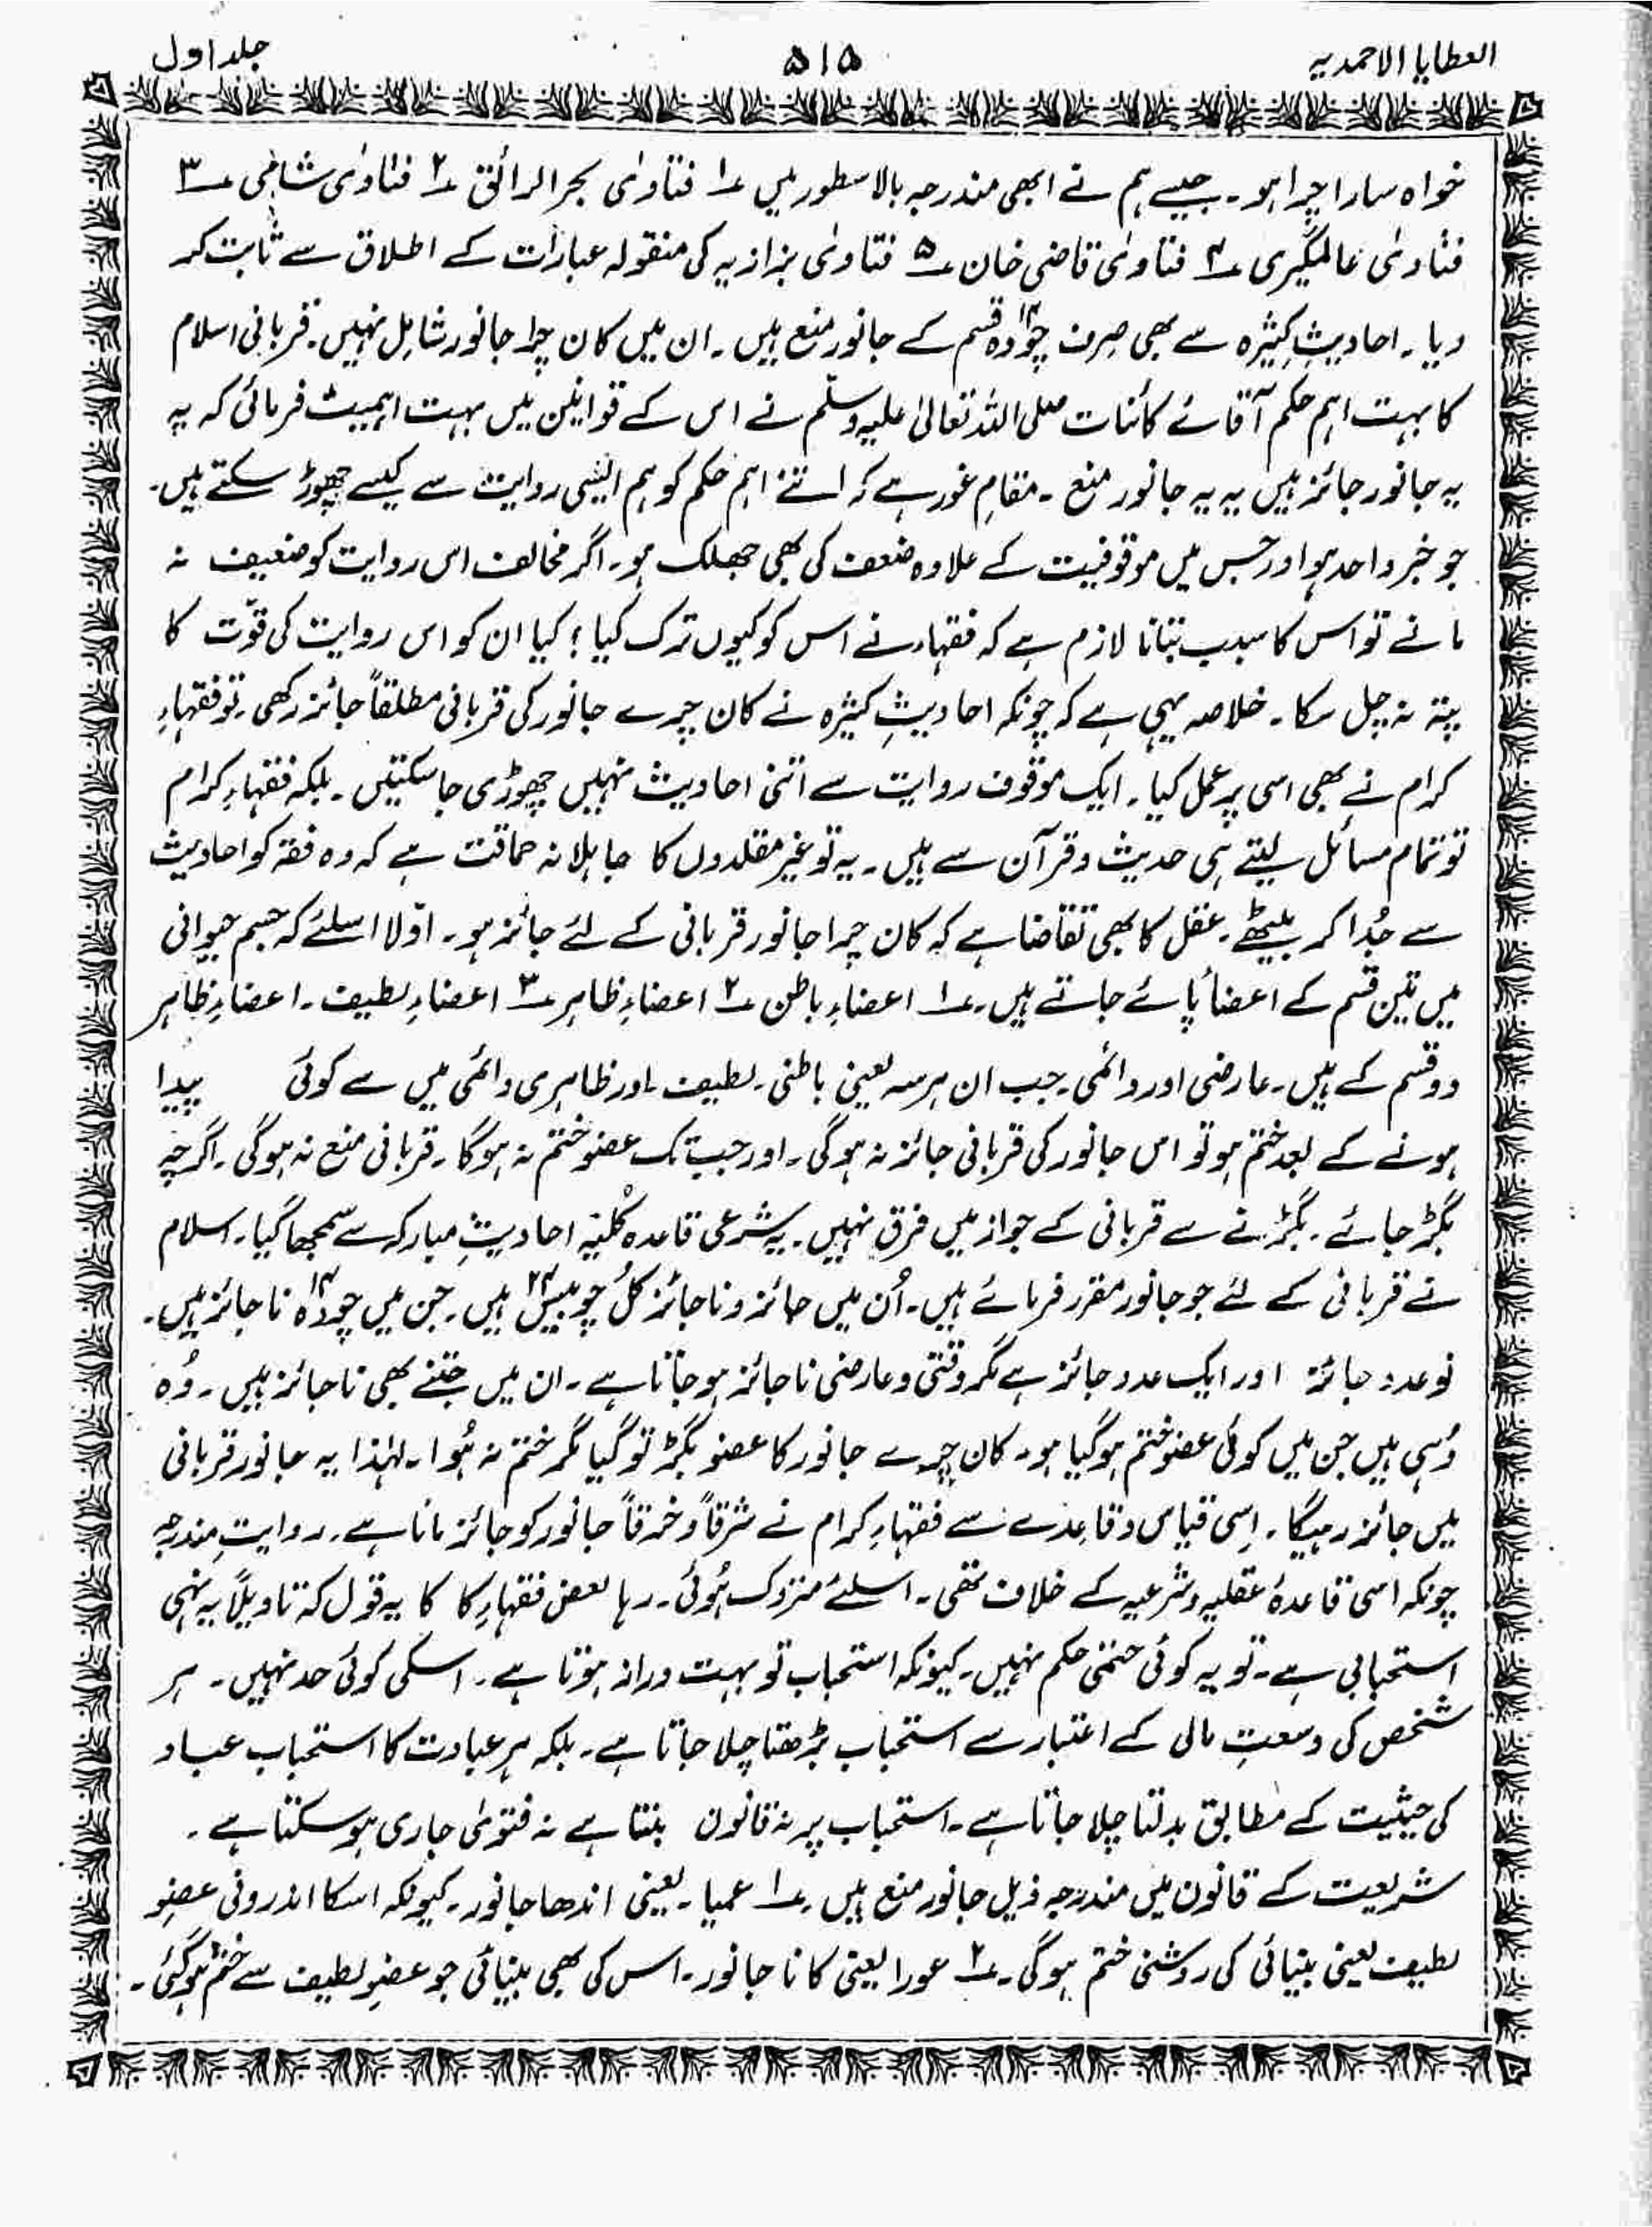 العطایا الاحمدیہ
۵۱۵
جلد اول
خواہ سارا چرا ہو۔ جیسے ہم نے ابھی مندرجہ بالا سطور میں ؁۱ فتاوٰی بحر الرائق ؁۲ فتاوٰی شامی ؁۳
فتاوٰی عالمگیری ؁۴ فتاوٰی قاضی خان ؁۵ فتاوٰی بزازیہ کی منقولہ عبارات کے اطلاق سے ثابت کر
دیا۔ احادیثِ کثیرہ سے بھی صرف چودہ۱۴ قسم کے جانور منع ہیں۔ ان میں کان چرا جانور شامل نہیں۔ قربانی اسلام
کا بہت اہم حکم آقائے کائنات صلی اللہ تعالیٰ علیہ وسلّم نے اس کے قوانین میں بہت اہمیت فرمائی کہ یہ
یہ جانور جائز ہیں یہ یہ جانور منع۔ مقامِ غور ہے کہ اتنے اہم حکم کو ہم ایسی روایت سے کیسے چھوڑ سکتے ہیں۔
جو خبر واحد ہو اور جس میں موقوفیت کے علاوہ ضعف کی بھی جھلک ہو۔ اگر مخالف اس روایت کو ضعیف نہ
مانے تو اس کا سبب بتانا لازم ہے کہ فقہاء نے اس کو کیوں ترک کیا؟ کیا ان کو اس روایت کی قوّت کا
پتہ نہ چل سکا۔ خلاصہ یہی ہے کہ چونکہ احادیثِ کثیرہ نے کان چرے جانور کی قربانی مطلقاً جائز رکھی۔ تو فقہاءِ
کرام نے بھی اسی پر عمل کیا۔ ایک موقوف روایت سے اتنی احادیث نہیں چھوڑی جا سکتیں۔ بلکہ فقہاءِ کرام
تو تمام مسائل لیتے ہی حدیث و قرآن سے ہیں۔ یہ تو غیر مقلدوں کا جاہلانہ حماقت ہے کہ وہ فقہ کو احادیث
سے جُدا کر بیٹھے۔ عقل کا بھی تقاضا ہے کہ کان چرا جانور قربانی کے لئے جائز ہو۔ اوّلا اسلئے کہ جسم حیوانی
میں تین قسم کے اعضأ پائے جاتے ہیں۔ ؁۱ اعضاءِ باطن ؁۲ اعضاءِ ظاہر ؁۳ اعضاءِ لطیف۔ اعضاءِ ظاہر
دو قسم کے ہیں۔ عارضی اور دائمی۔ جب ان ہر سہ یعنی باطنی۔ لطیف۔ اور ظاہری دائمی میں سے کوئی پیدا
ہونے کے بعد ختم ہو تو اس جانور کی قربانی جائز نہ ہوگی۔ اور جب تک عضو ختم نہ ہوگا۔ قربانی منع نہ ہوگی۔ اگرچہ
بگڑ جائے۔ بگڑنے سے قربانی کے جواز میں فرق نہیں۔ یہ شرعی قاعدہ کُلیہ احادیثِ مبارکہ سے سمجھا گیا۔ اسلام
نے قربانی کے لئے جو جانور مقرر فرمائے ہیں۔ اُن میں جائز و ناجائز کُل چوبیس۲۴ ہیں۔ جن میں چودہ۱۴ ناجائز ہیں۔
نو عدد جائز اور ایک عدد جائز ہے مگر وقتی و عارضی ناجائز ہو جاتا ہے۔ ان میں جتنے بھی ناجائز ہیں۔ وُہ
وُہی ہیں جن میں کوئی عضو ختم ہوگیا ہو۔ کان چرے جانور کا عضو بگڑ تو گیا مگر ختم نہ ہُوا۔ لہٰذا یہ جانور قربانی
میں جائز رہیگا۔ اِسی قیاس و قاعدے سے فقہاءِ کرام نے شرقاً و خرقاً جانور کو جائز مانا ہے۔ روایتِ مندرجہ
چونکہ اسی قاعدۂ عقلیہ و شرعیہ کے خلاف تھی۔ اسلئے متروک ہُوئی۔ رہا بعض فقہاءِ کا کا یہ قول کہ تاویلاً یہ نہی
استحبابی ہے۔ تو یہ کوئی حتمی حکم نہیں۔ کیونکہ استحباب تو بہت دراز ہوتا ہے۔ اسکی کوئی حد نہیں۔ ہر
شخص کی وسعتِ مالی کے اعتبار سے استحباب بڑھتا چلا جاتا ہے۔ بلکہ ہر عبادت کا استحباب عباد
کی حیثیت کے مطابق بدلتا چلا جاتا ہے۔ استحباب پر نہ قانون بنتا ہے نہ فتوٰی جاری ہو سکتا ہے۔
شریعت کے قانون میں مندرجہ ذیل جانور منع ہیں۔ ؁۱ عمیا۔ یعنی اندھا جانور۔ کیونکہ اسکا اندرونی عضوِ
لطیف یعنی بینائی کی روشنی ختم ہوگی۔ ؁۲ عورا یعنی کانا جانور۔ اس کی بھی بینائی جو عضوِ لطیف سے ختم ہوگئی۔